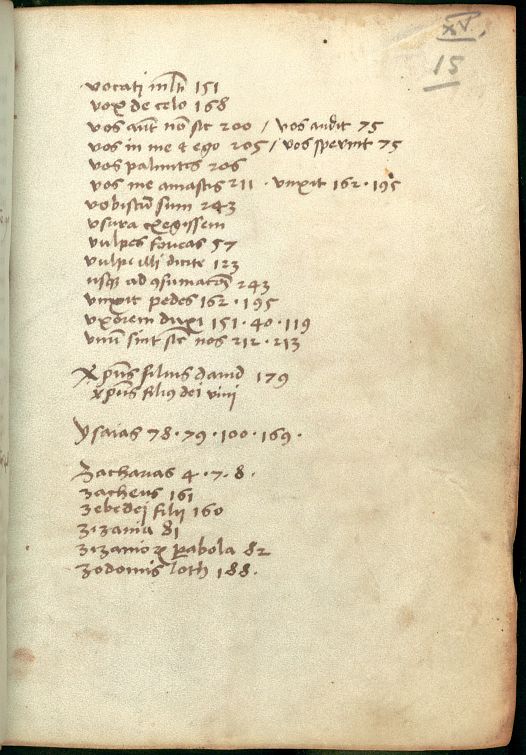 XV.
15
vocati mlti 151
vox de celo 168
vos aut non sic 200 / vos audit 75
vos in me & ego 205 / vos spernit 75
vos palmites 206
vos me amastis 211 · vnxit 162 · 195
vobiscu sum 243
vsura exegissem
vulpes foueas 57
vulpi illi dicite 123
usq ad 9sumatoem 243
vnxit pedes 162 · 195
vxorem duxi 151 · 40 · 119
vnu sint sic nos 212 · 213
Xpus filius dauid 179
xpus fili9 dei viui
Ysaias 78 · 79 · 100 · 169 ·
Zacharias 4 · 7 · 8 ·
zacheus 161
zebedei filii 160
zizania 81
zizanioꝝ ꝑabola 82
zodomis loth 188 ·